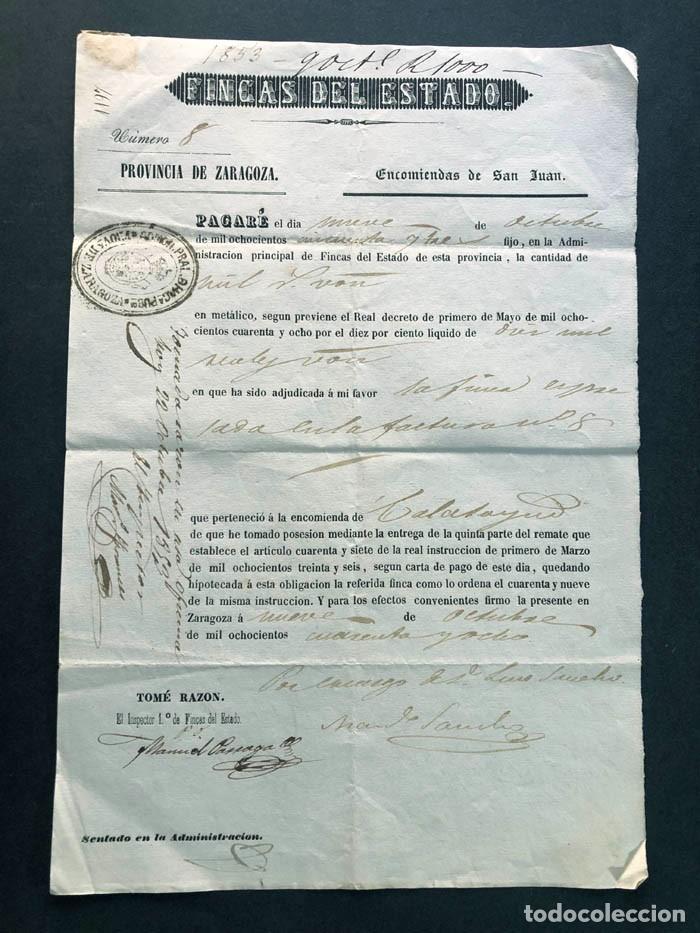 1853 - 9 oct.e R 1000 -
FINCAS DEL ESTADO.
Número 8
PROVINCIA DE ZARAGOZA.
Encomiendas de San Juan.
PAGARÉ el dia nueve de octubre
de mil ochocientos cincuenta y tres fijo, en la Admi-
nistracion principal de Fincas del Estado de esta provincia, la cantidad de
mil r.s von
en metálico, segun previene el Real decreto de primero de Mayo de mil ocho-
cientos cuarenta y ocho por el diez por ciento liquido de diez mil
reales von
en que ha sido adjudicada á mi favor la finca expre
sada en la factura nº 8
que perteneció á la encomienda de Calatayud
de que he tomado posesion mediante la entrega de la quinta parte del remate que
establece el artículo cuarenta y siete de la real instruccion de primero de Marzo
de mil ochocientos treinta y seis, segun carta de pago de este dia, quedando
hipotecada á esta obligacion la referida finca como lo ordena el cuarenta y nueve
de la misma instruccion. Y para los efectos convenientes firmo la presente en
Zaragoza á nueve de octubre
de mil ochocientos cuarenta y ocho
Por encargo de D. Sancho
Sancho
TOMÉ RAZON.
El Inspector 1.º de Fincas del Estado.
Manuel
Sentado en la Administracion.
Tomada razon en esta
22 Octubre 1853
ZARAGOZA
todocoleccion
todocoleccion.net